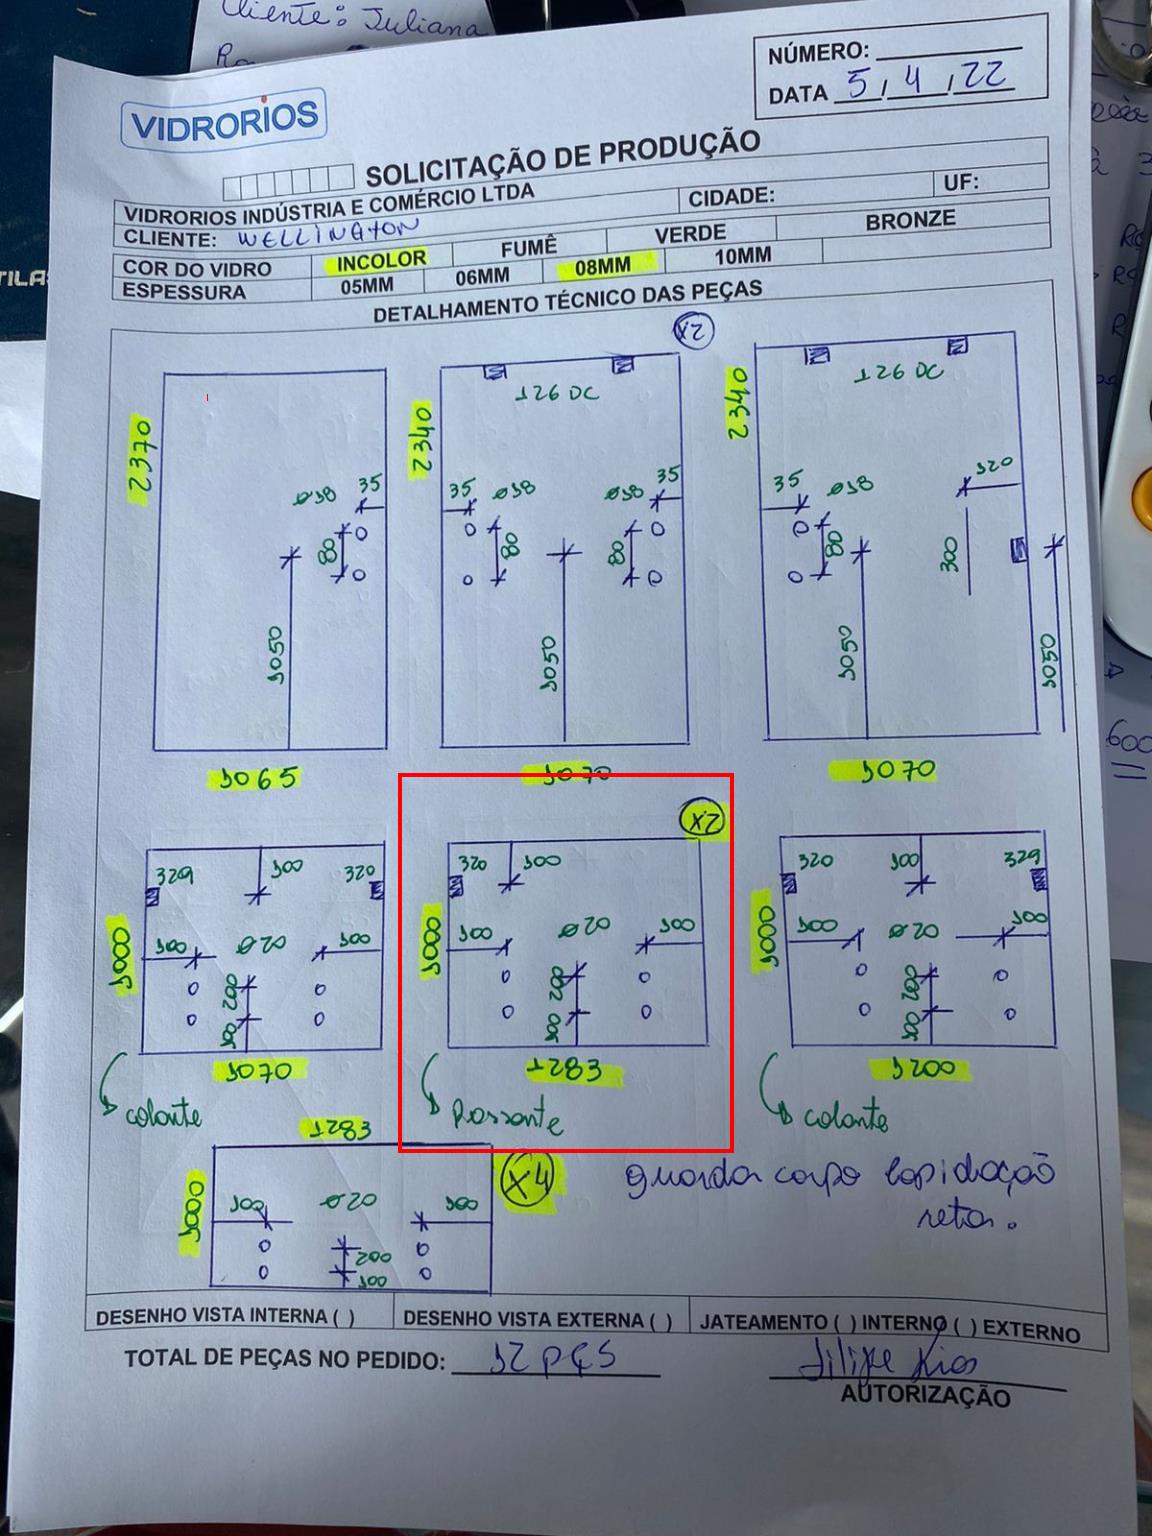 Cliente: Juliana
NÚMERO:
DATA 5, 4, 22
VIDRORIOS
SOLICITAÇÃO DE PRODUÇÃO
VIDRORIOS INDÚSTRIA E COMÉRCIO LTDA CIDADE: UF:
CLIENTE: WELLINGTON
COR DO VIDRO INCOLOR FUMÊ VERDE BRONZE
ESPESSURA 05MM 06MM 08MM 10MM
DETALHAMENTO TÉCNICO DAS PEÇAS
x2
2370
ø18
35
80
1050
1065
2340
126 DC
35 ø18 ø18 35
80 80
1050
1070
2340
126 DC
35 ø18 120
80 300
1050 1050
1070
329 100 320
1000
100 ø20 100
200
100
1070
colante
x2
320 100
1000
100 ø20 100
200
100
1283
Passante
320 100 329
1000
100 ø20 100
200
100
1200
colante
1283
x4
1000
100 ø20 100
200
100
guarda corpo lapidação
reta.
DESENHO VISTA INTERNA ( ) DESENHO VISTA EXTERNA ( ) JATEAMENTO ( ) INTERNO ( ) EXTERNO
TOTAL DE PEÇAS NO PEDIDO: 12 PÇS
Filipe Rios
AUTORIZAÇÃO
600